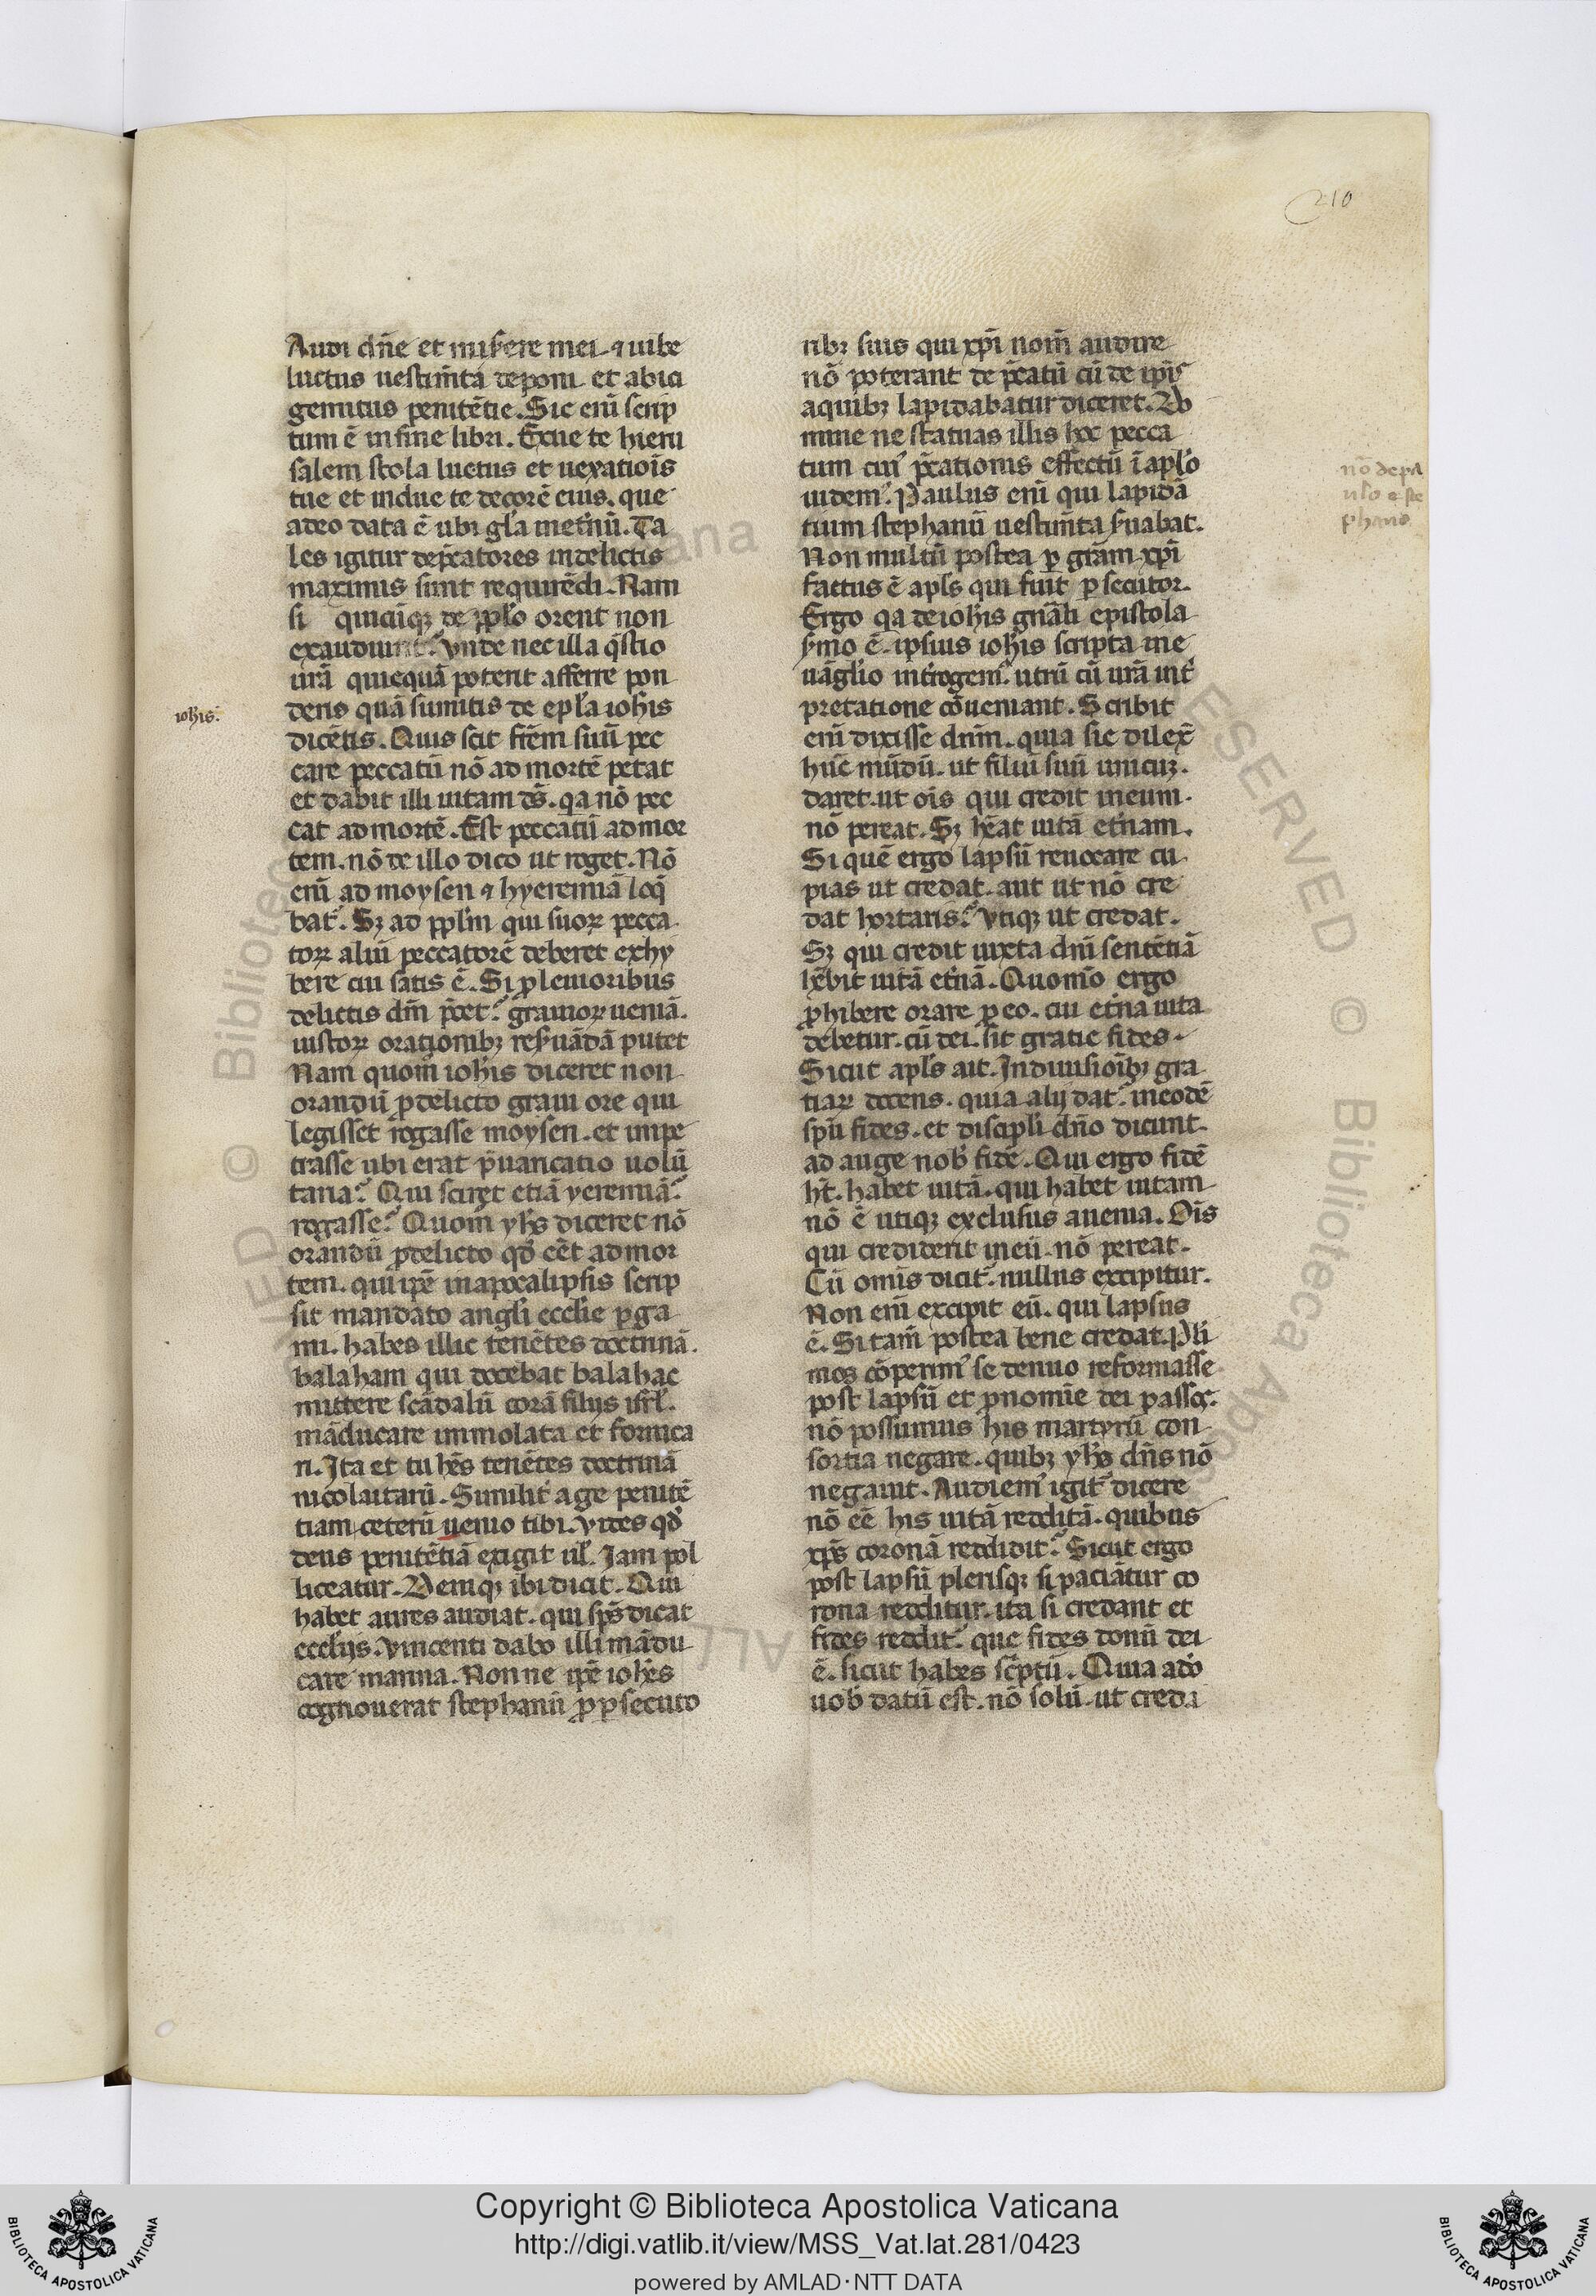 210
Audi dñe et miserere mei. ⁊ iube
luctus uestim̃ta deponi. et abici
gemitus penitẽtie. Sic enĩ scrip
tum ẽ in fine libri. Exue te hieru
salem stola luctus et uexatiois̃
tue et indue te decorẽ eius. que
a deo data ẽ ubi gl̃a met̃nũ. Ta
les igitur dep̃catores in delictis
maximis sunt requirẽdi. Nam
si quicũqꝫ de pplo orent non
exaudiunt᷑. Vnde nec illa q̃stio
ur̃a quicquã poterit afferre pon
deris quã sumitis de epl̃a ioh̃is
dicẽtis. Quis scit fr̃em suũ pec
care peccatũ nõ ad mortẽ petat
et dabit illi uitam ds̃. qa nõ pec
cat ad mortẽ. Est peccatũ ad mor
tem. nõ de illo dico ut roget. Nõ
enĩ ad moysen ⁊ hyeremiã loq̃
bat᷑. Sꝫ ad pplm̃ qui suoꝝ pecca
toꝝ aliũ peccatorẽ deberet exhy
bere cui satis ẽ. Si ꝓ leuioribus
delictis dm̃ p̃cet᷑. grauioꝝ ueniã.
iustoꝝ orationibꝫ res̃uãdã putet
Nam quom̃ ioh̃is diceret non
orandũ ꝓ delicto graui ore qui
legisset rogasse moysen. et impe
trasse ubi erat p̃uaricatio uolũ
taria᷑. Qui sciret etiã yeremiã᷑
rogasse᷑. Quom̃ yh̃s diceret nõ
orandũ ꝓ delicto qd̃ eẽt ad mor
tem. qui ip̃e in apocalipsis scrip
sit mandato angl̃i ecclie ꝑga
mi. habes illic tenẽtes doctrinã.
balaham qui docebat balahac
mittere scãdalũ corã filijs isrl̃.
mãducare immolata et fornica
ri. Ita et tu hẽs tenẽtes doctrinã
nicolaitarũ. Similit̃ age penitẽ
tiam ceterũ uenio tibi. Vides qd̃
deus penitẽtiã exigit ul̃. Iam pol
liceatur. Deniqꝫ ibi dicit. Qui
habet aures audiat. qui sps̃ dicat
ecclijs. Vincenti dabo illi mãdu
care manna. Nonne ip̃e ioh̃es
cognouerat stephanũ ꝓ ꝑsecuto
ioh̃is.
ribꝫ suis qui xp̃i nom̃ audire
nõ poterant dep̃catũ cũ de ip̃is
a quibꝫ lapidabatur diceret. Do
mine ne statuas illis hoc pecca
tum cui᷒ p̃cationis effectũ ĩ aplo
uidem᷒. Paulus enĩ qui lapidã
tium stephanũ uestim̃ta s̃uabat.
Non multũ postea ꝑ gr̃am xp̃i
factus ẽ apls̃ qui fuit ꝑsecutor.
Ergo qa de ioh̃is gñali epistola
s̃mo ẽ. ipsius ioh̃is scripta in e
uãglio int̃rogem᷒. utrũ cũ ur̃a int̃
pretatione cõueniant. Scribit
enĩ dixisse dn̄m. quia sic dilex̃
hũc mũdũ. ut filiũ suũ unicuꝫ.
daret. ut ois̃ qui credit in eum.
nõ pereat. Sꝫ hẽat uitã et̃nam.
Si quẽ ergo lapsũ reuocare cu
pias ut credat. aut ut nõ cre
dat hortaris᷑. Vtiqꝫ ut credat.
Sꝫ qui credit iuxta dñi sentẽtiã
hẽbit uitã et̃nã. Quomõ ergo
ꝓhibere orare ꝓ eo. cui et̃na uita
debetur. cũ dei. sit gratie fides.
Sicut apls̃ ait. In diuisioĩbꝫ gra
tiaꝝ docens. quia alij dat᷑. in eodẽ
spũ fides. et discipli dño dicunt.
ad auge nob̃ fidẽ. Qui ergo fidẽ
ht̃. habet uitã. qui habet uitam
nõ ẽ utiqꝫ exclusus a uenia. Ois̃
qui crediderit in eũ. nõ pereat.
Cũ omĩs dicit᷑. nullus excipitur.
Non enĩ excipit eũ. qui lapsus
ẽ. Si tam̃ postea bene credat. Pli
mos cõperim᷒ se denuo reformasse
post lapsũ et ꝓ nomĩe dei passos.
nõ possumus his martyrũ con
sortia negare. quibꝫ yh̃s dñs nõ
negauit. Audem᷒ igit᷑ dicere
nõ eẽ his uitã redditã. quibus
xps̃ coronã reddidit᷑. Sicut ergo
post lapsũ plerisqꝫ si paciãtur co
rona redditur. ita si credant et
fides reddit᷑. que fides donũ dei
ẽ. sicut habes sc̃ptũ. Quia a dõ
uob̃ datũ est. nõ solũ. ut creda
nõ de pa
ulo e ste
phano
Copyright © Biblioteca Apostolica Vaticana
http://digi.vatlib.it/view/MSS_Vat.lat.281/0423
powered by AMLAD·NTT DATA
BIBLIOTECA APOSTOLICA VATICANA
BIBLIOTECA APOSTOLICA VATICANA